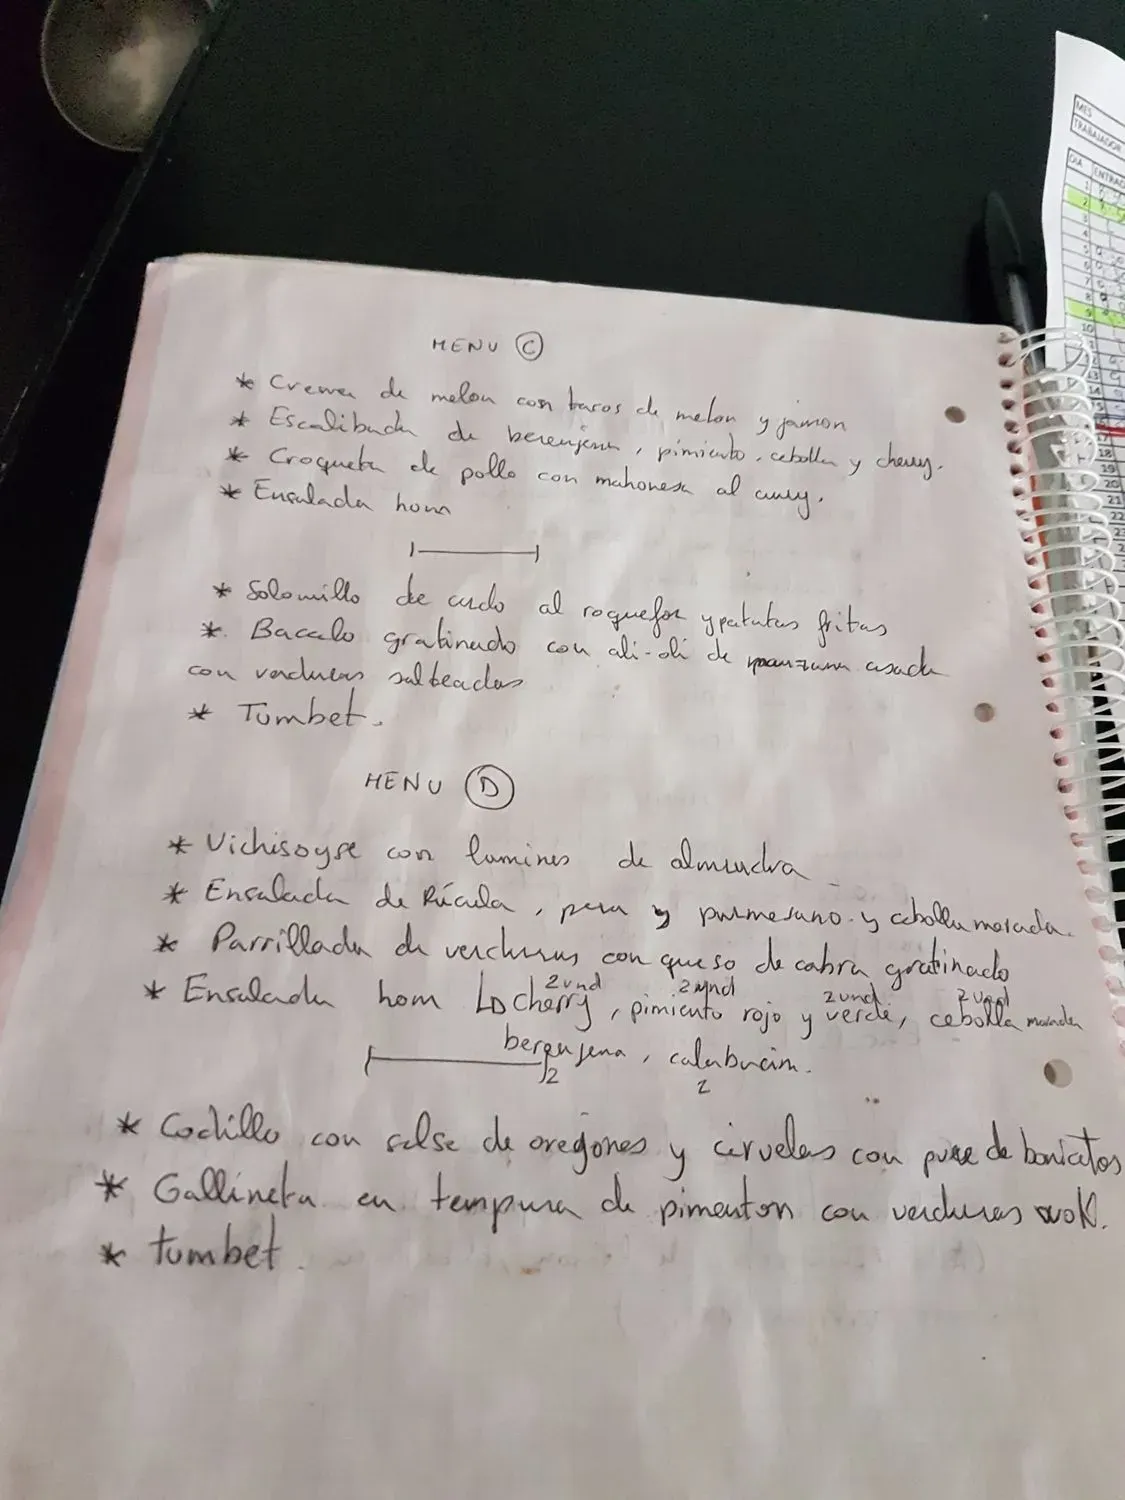 MENU C
* Crema de melon con tacos de melon y jamon
* Escalibada de berenjena, pimiento, cebolla y cherry.
* Croqueta de pollo con mahonesa al curry.
* Ensalada hom
* Solomillo de cerdo al roquefor y patatas fritas
* Bacalo gratinado con ali-oli de manzana asada
con verduras salteadas
* Tumbet.
MENU D
* Vichisoyse con lamines de almendra
* Ensalada de Rúcula, pera y parmesano y cebolla morada.
* Parrillada de verduras con queso de cabra gratinado
2 und 2 und 2 und 2 und
* Ensalada hom cherry, pimiento rojo y verde, cebolla morada
berenjena, calabacin.
2 2
* Codillo con salsa de oregones y ciruelas con pure de boniatos
* Gallineta en tempura de pimenton con verduras wok.
* tumbet.
MES
TRABAJADOR
DIA ENTRAD
1
2
3
4
5
6
7
8
9
10
13
14
15
18
19
20
21
22